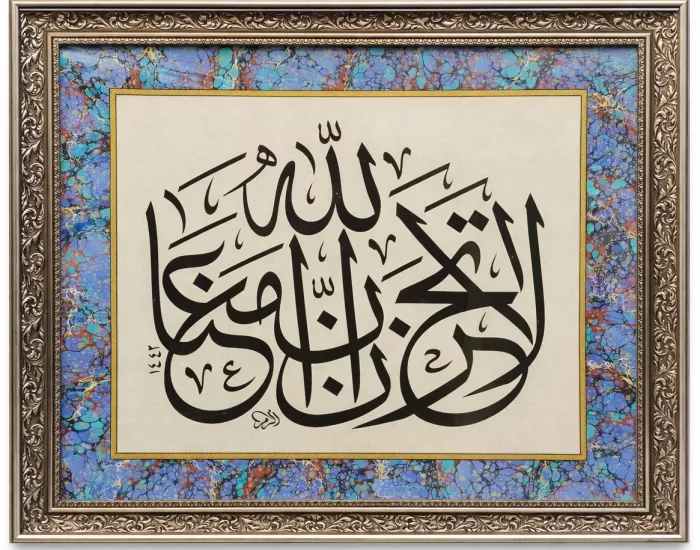 لا تحزن إنّ الله معنا
١٤٤٢